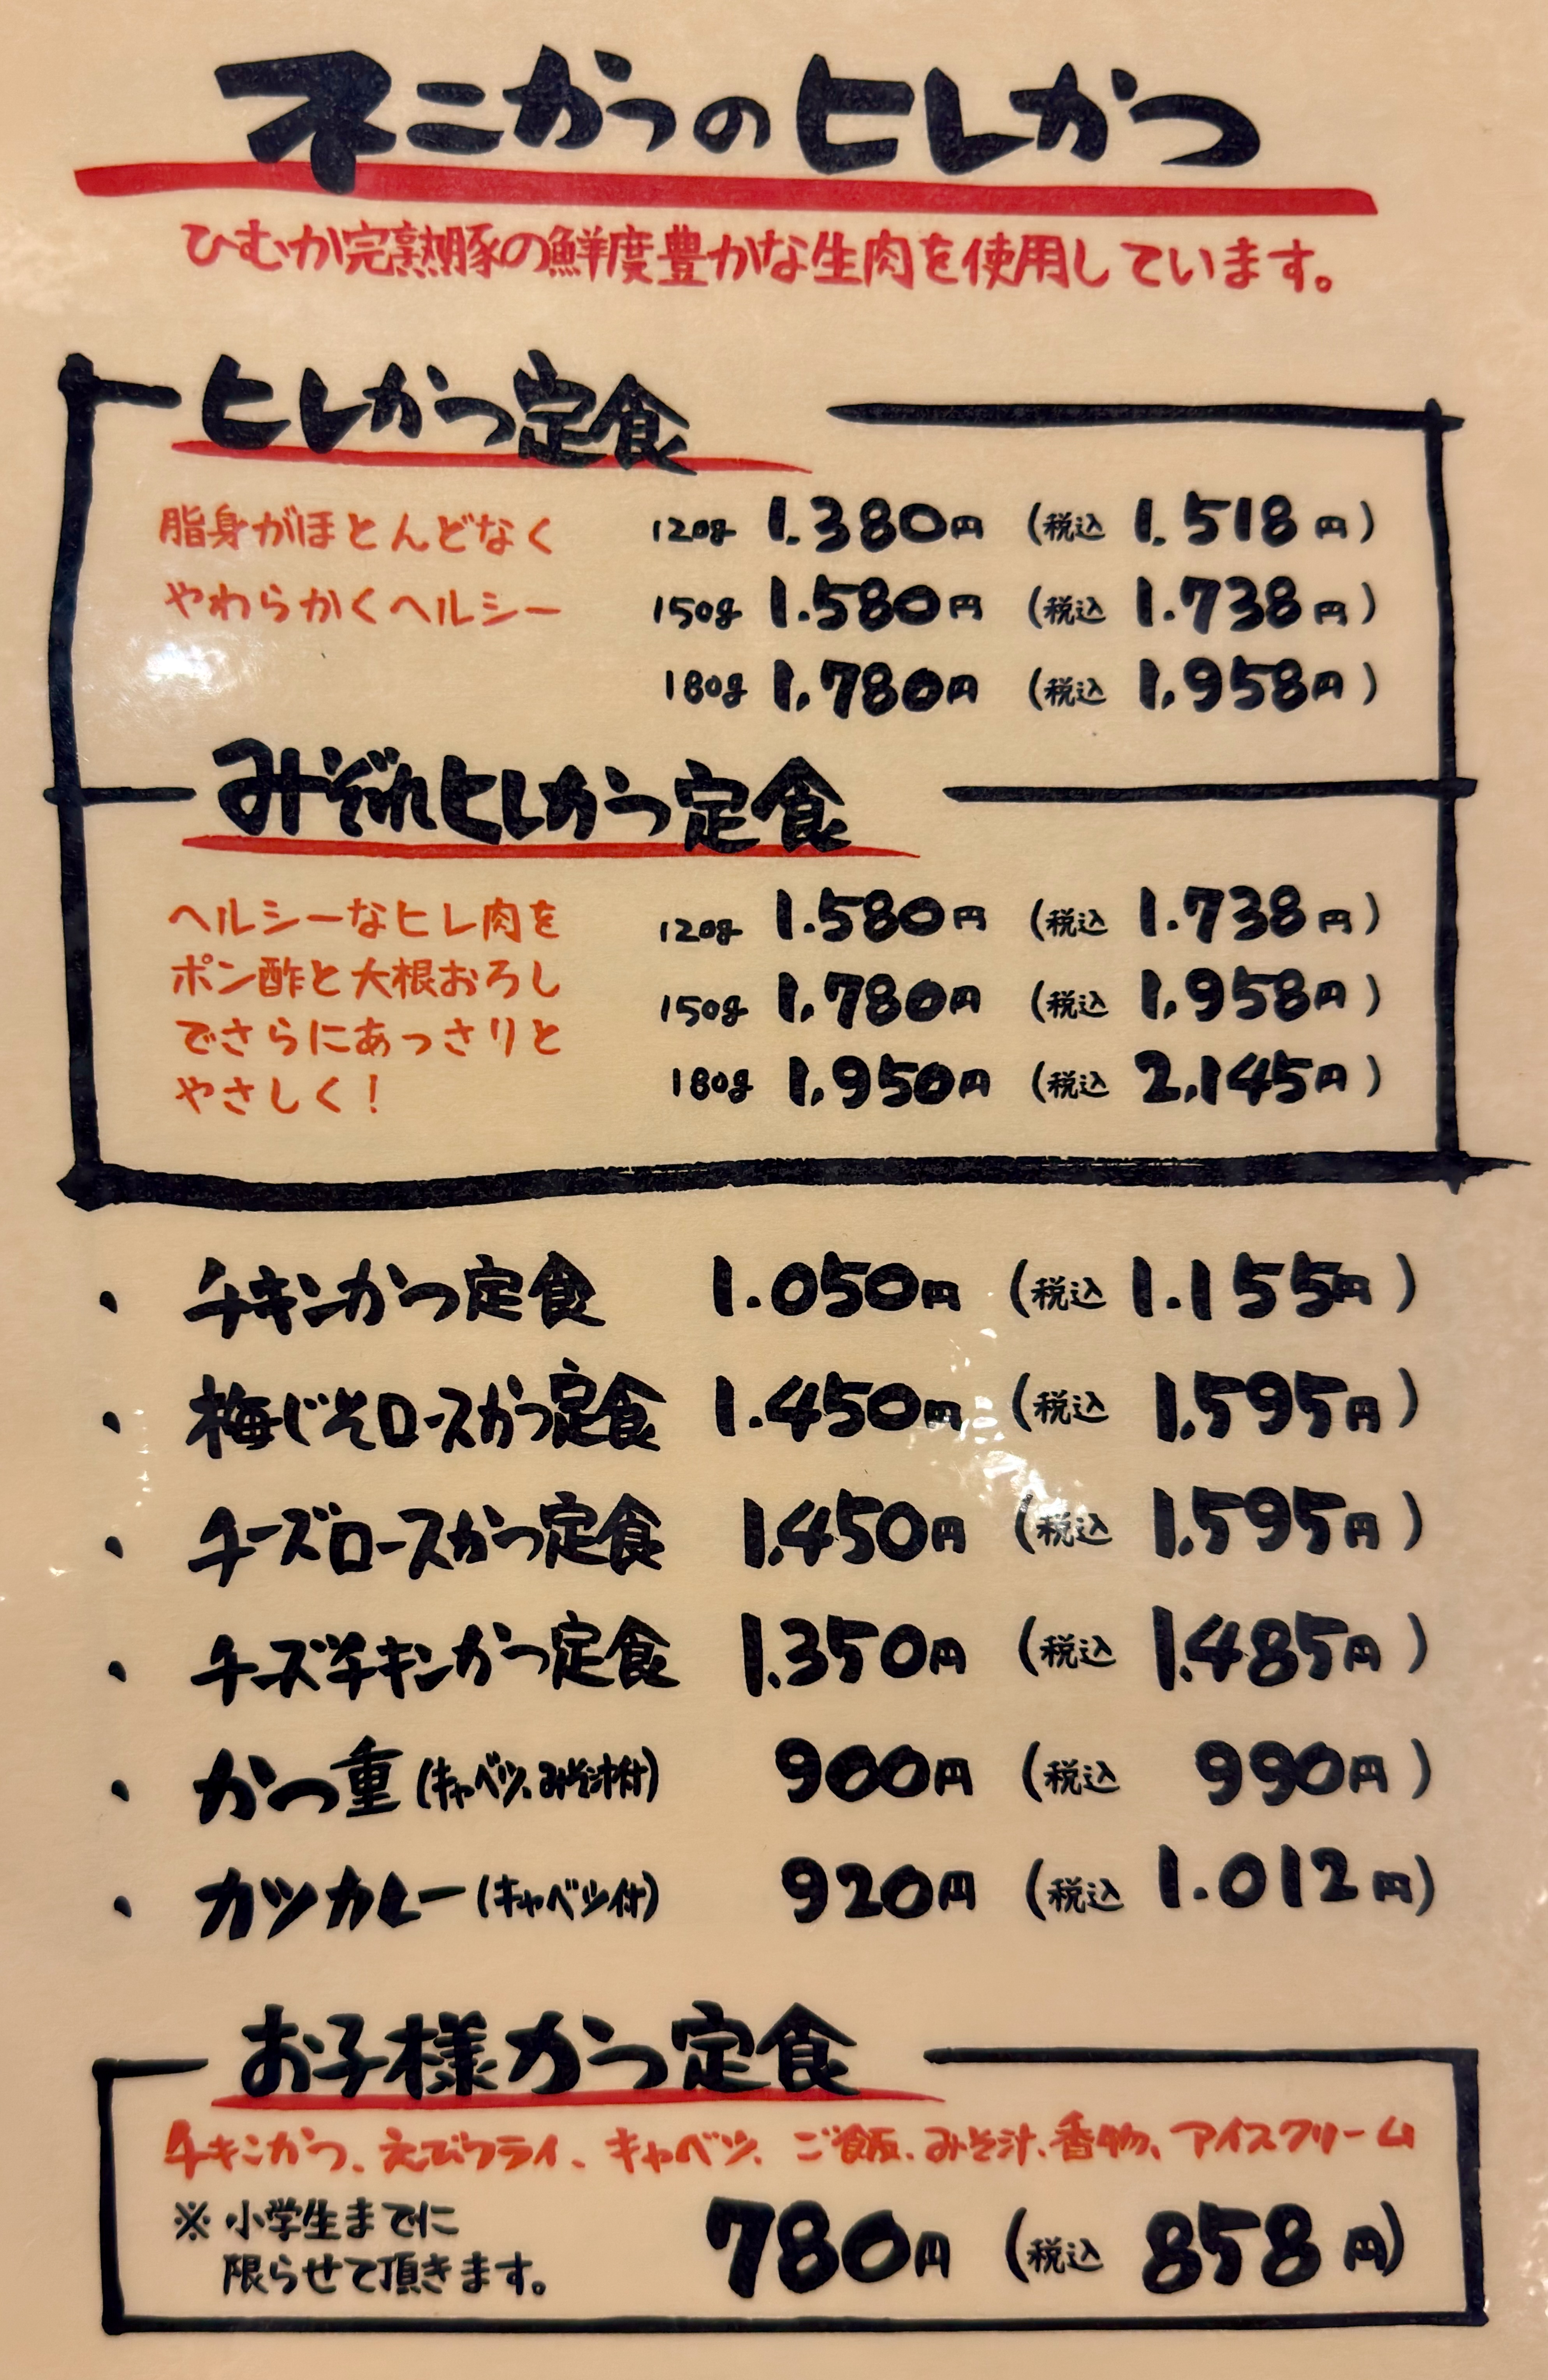 ネこかつのヒレかつ
ひむか完熟豚の鮮度豊かな生肉を使用しています。
ヒレかつ定食
脂身がほとんどなく 120g 1.380円 (税込 1.518円)
やわらかくヘルシー 150g 1.580円 (税込 1.738円)
180g 1,780円 (税込 1,958円)
みぞれヒレかつ定食
ヘルシーなヒレ肉を 120g 1.580円 (税込 1.738円)
ポン酢と大根おろし 150g 1,780円 (税込 1,958円)
でさらにあっさりと
やさしく! 180g 1,950円 (税込 2,145円)
・チキンかつ定食 1.050円 (税込 1.155円)
・梅じそロースかつ定食 1.450円 (税込 1,595円)
・チーズロースかつ定食 1,450円 (税込 1,595円)
・チーズチキンかつ定食 1,350円 (税込 1,485円)
・かつ重(キャベツ、みそ汁付) 900円 (税込 990円)
・カツカレー(キャベツ付) 920円 (税込 1.012円)
お子様かつ定食
チキンかつ、えびフライ、キャベツ、ご飯、みそ汁、香物、アイスクリーム
※小学生までに
限らせて頂きます。 780円 (税込 858円)